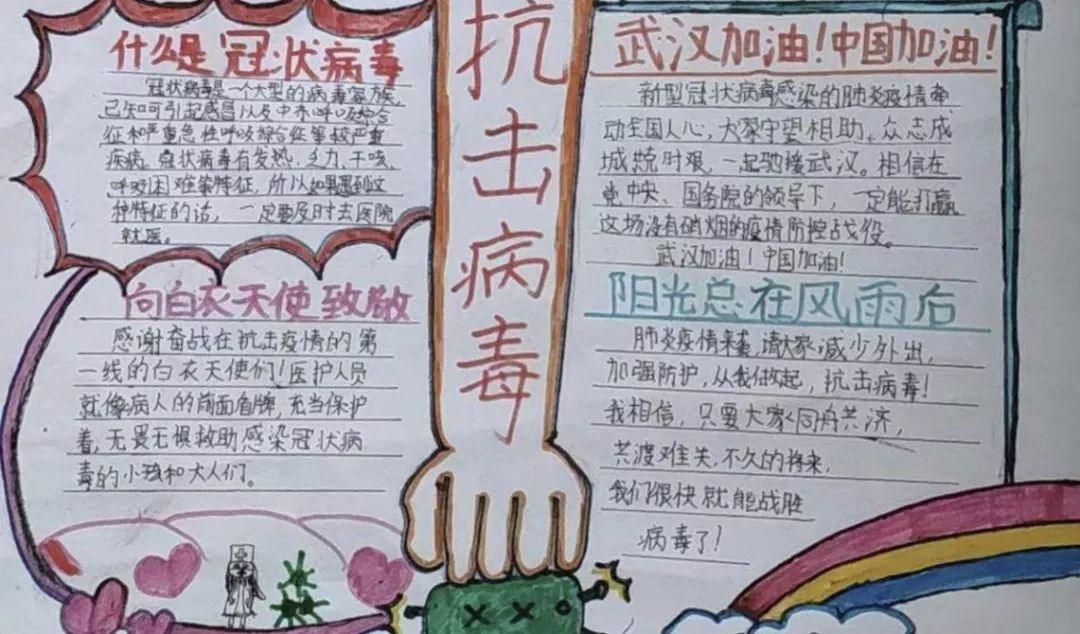 什么是冠状病毒
冠状病毒是一个大型的病毒家族,
已知可引起感冒以及中东呼吸综合
征和严重急性呼吸综合征等较严重
疾病。冠状病毒有发热、乏力、干咳、
呼吸困难等特征,所以如果遇到这
种特征的话,一定要及时去医院
就医。
向白衣天使致敬
感谢奋战在抗击疫情的第
一线的白衣天使们!医护人员
就像病人的前面盾牌,充当保护
着,无畏无惧救助感染冠状病
毒的小孩和大人们。
抗击病毒
武汉加油!中国加油!
新型冠状病毒感染的肺炎疫情牵
动全国人心,大家守望相助。众志成
城战时艰,一起驰援武汉。相信在
党中央、国务院的领导下,一定能打赢
这场没有硝烟的疫情防控战役。
武汉加油!中国加油!
阳光总在风雨后
肺炎疫情来袭,请大家减少外出,
加强防护,从我做起,抗击病毒!
我相信,只要大家同舟共济,
共渡难关,不久的将来,
我们很快就能战胜
病毒了!